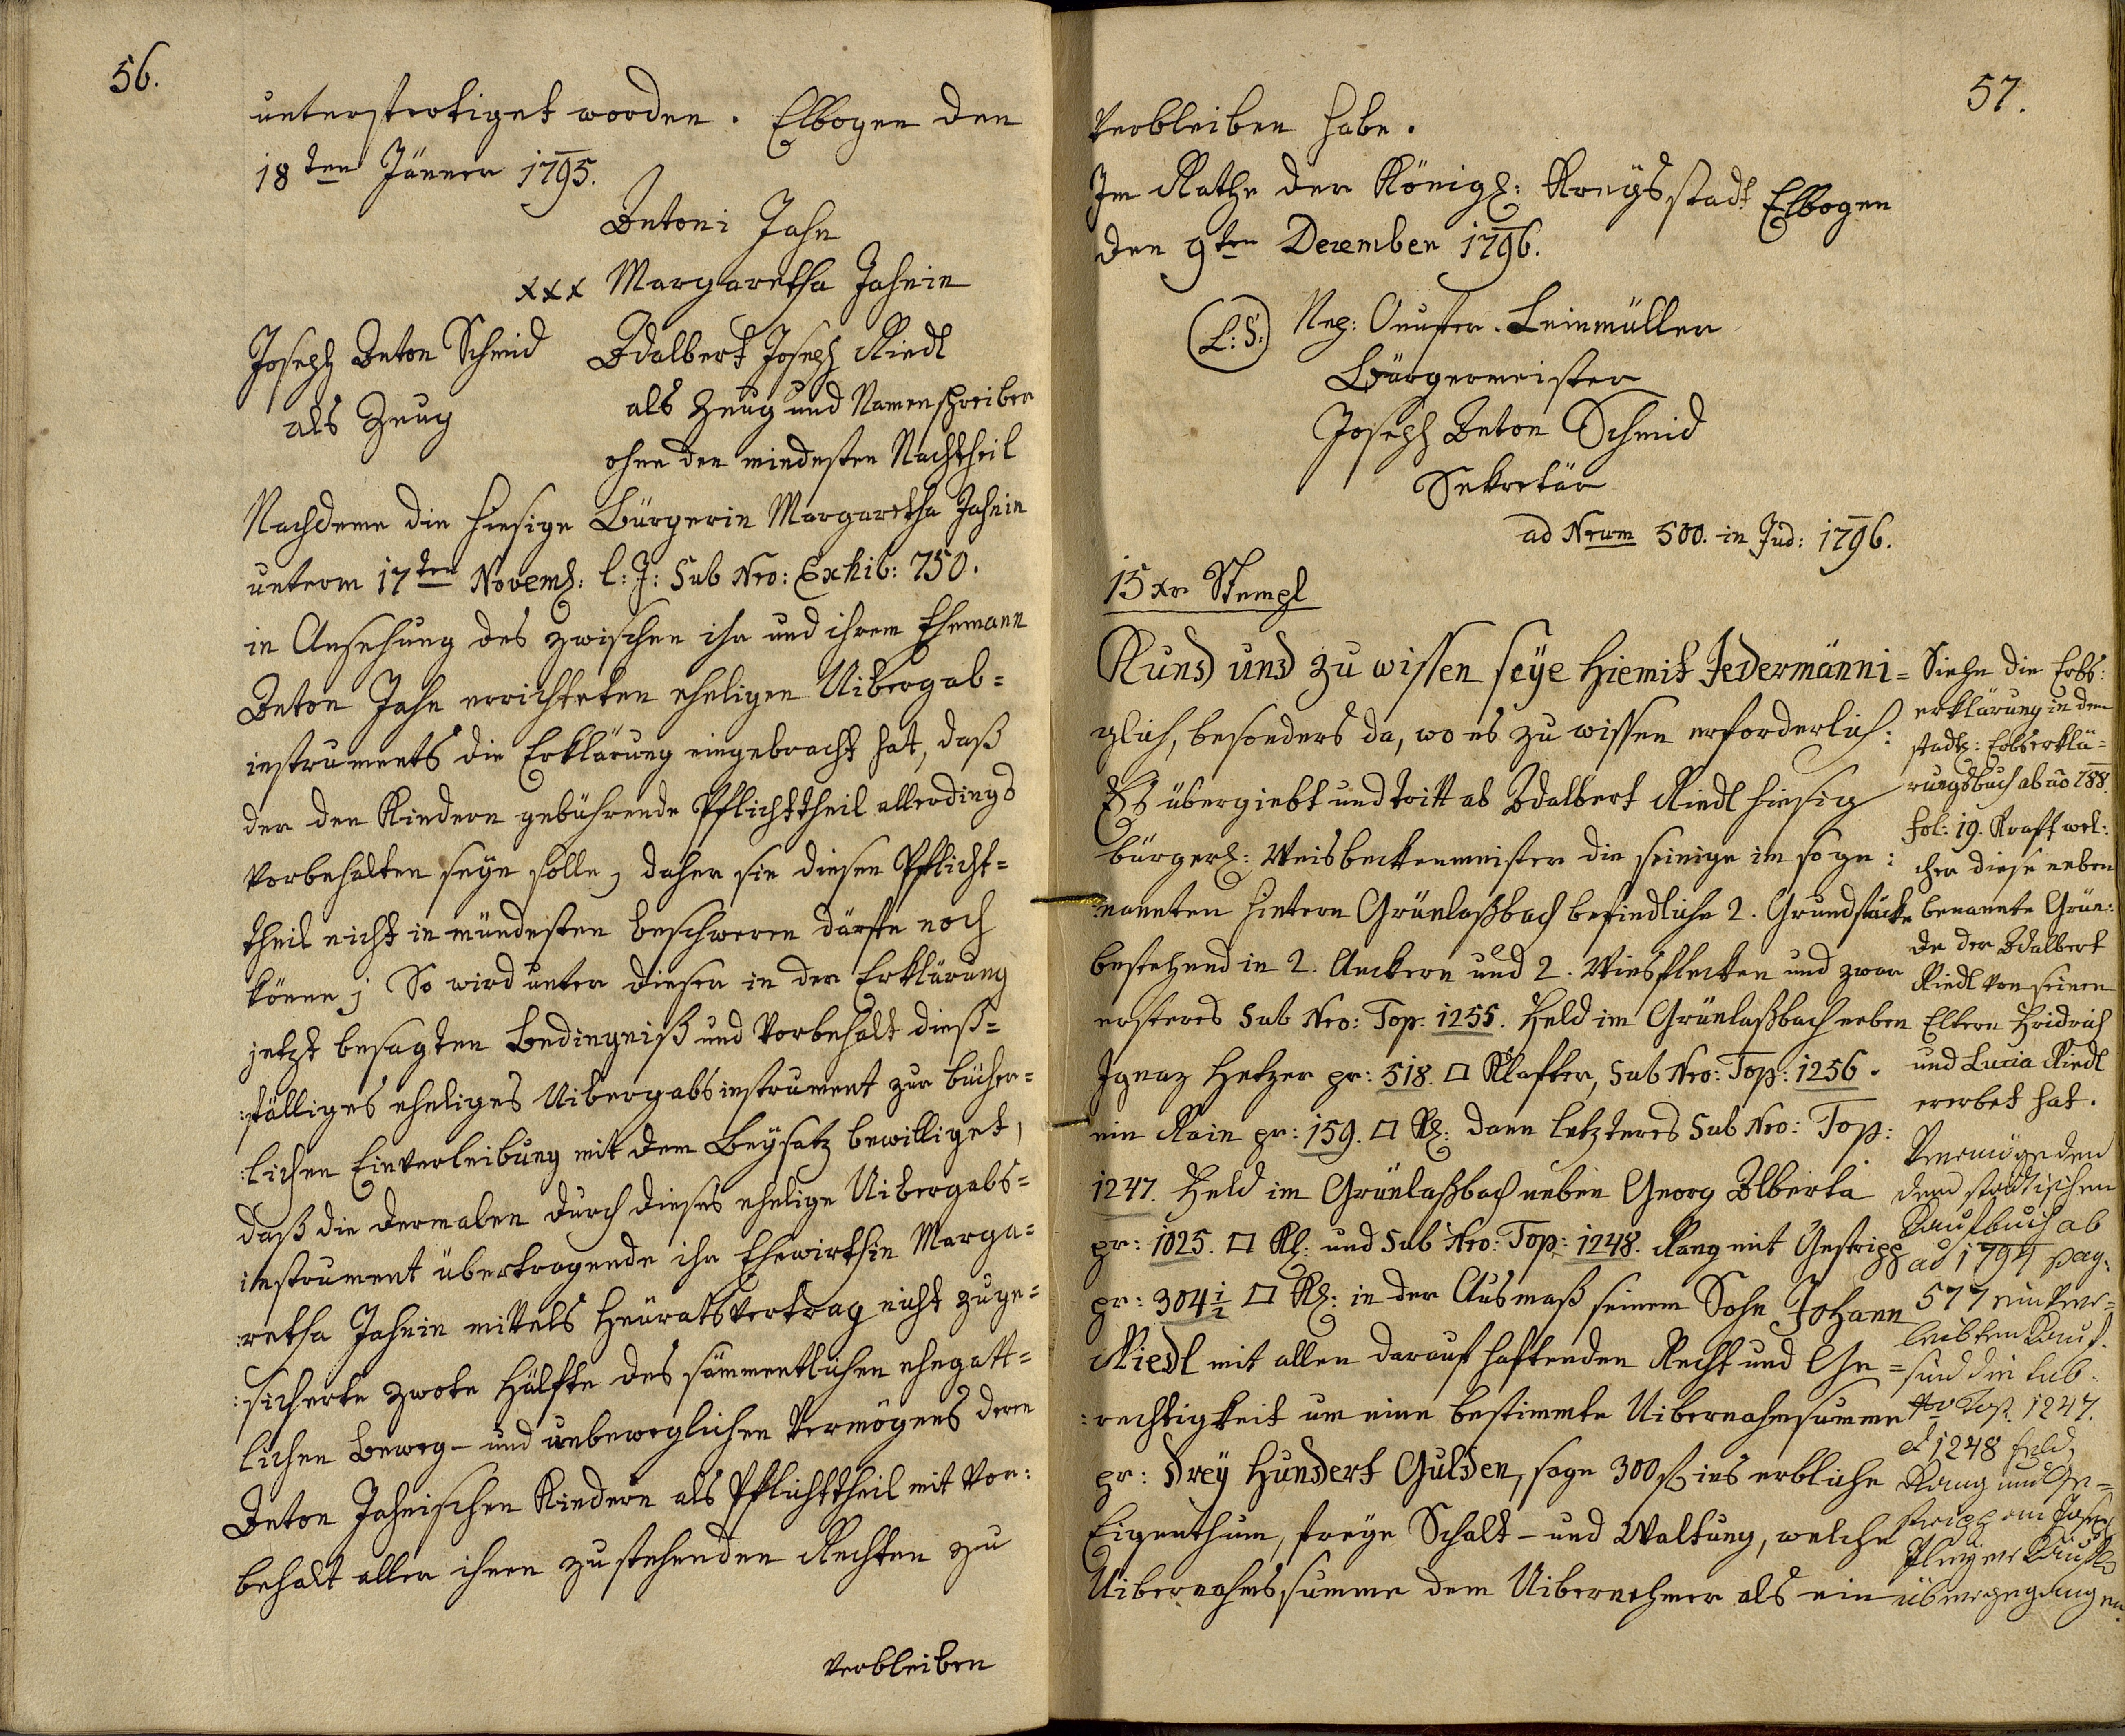 56.
unterfertiget worden. Elbogen den
18ten Jänner 1795.
Antoni Jahn
xxx Margaretha Jahnin
Joseph Anton Schmid
als Zeug
Adalbert Joseph Riedl
als Zeug und Namenschreiber
ohne den mindesten Nachtheil
Nachdeme die hiesige Bürgerin Margaretha Jahnin
unterm 17ten Novemb: l: J: Sub Nro: Exhib: 750.
in Ansehung des zwischen ihr und ihrem Ehemann
Anton Jahn errichteten eheligen Uibergab=
instruments die Erklärung eingebracht hat, daß
der den Kindern gebührende Pflichttheil allerdings
vorbehalten seyn solle, daher sie diesen Pflicht=
theil nicht in mündesten beschweren därfte noch
könne; So wird unter dieser in der Erklärung
jetzt besagten Bedingniß und Vorbehalt dieß=
:fälliges eheliges Uibergabsinstrument zur bücher=
:lichen Einverleibung mit dem Beysatz bewilliget,
daß die dermalen durch dieses ehelige Uibergabs=
instrument übertragende ihr Ehewirthin Marga=
:retha Jahnin mittels Heüratsvertrag nicht zuge=
:sicherte zwote Hälfte des sämmentlichen ehegatt=
lichen beweg- und unbeweglichen Vermögens deren
Anton Jahnischen Kindern als Pflichttheil mit Vor:
behalt aller ihnen zustehenden Rechten zu
verbleiben
57.
Verbleiben habe.
Im Rathe der Königl: Kreysstadt Elbogen
den 9ten Dezember 1796.
(L:S:)
Nep: Leinmüller
Bürgermeister
Joseph Anton Schmid
Sekretär
ad Nrum 500. in Jud: 1796.
15 xr Stempl
Kund und zu wissen seye hiemit Jedermänni=
glich, besonders da, wo es zu wissen erforderlich:
Es übergiebt und tritt ab Adalbert Riedl hiesig
bürgerl: Weisbeckenmeister die seinige im soge:
nannten hintern Grünlaßbach befindliche 2. Grundstücke
bestehend in 2. Aeckern und 2. Wiesflecken und zwar
ersteres Sub Nro: Top: 1255. Feld im Grünlaßbach neben
Ignaz Hetzer pr: 518. □ Klafter, Sub Nro: Top: 1256.
ein Rain pr: 159. □ Kl: dann letzteres Sub Nro: Top:
1247. Feld im Grünlaßbach neben Georg Alberta
pr: 1025. □ Kl: und Sub Nro: Top: 1248. Rang mit Gestripp
pr: 304 1/2 □ Kl: in der Ausmaß seinem Sohn Johann
Riedl mit allen darauf haftenden Recht und Ge=
:rechtigkeit um eine bestimmte Uibernahmsumme
pr: Drey Hundert Gulden, sage 300 f ins erbliche
Eigenthum, freye Schalt- und Waltung, welche
Uibernahmssumme dem Uibernehmer als ein
Siehe die Erbs:
erklärung in dem
stadtl: Erbserklä=
rungsbuch ab ao 788.
fol: 19. Kraft wel:
cher diese neben
benannte Grün:
de der Adalbert
Riedl von seinen
Eltern Fridrich
und Lucia Riedl
ererbet hat.
Vermög den
dem stadtischen
Kaufbuch ab
ao 1794 pag:
577 einver=
leibten Kauf
sind die sub
Nro Top. 1247.
et 1248 Feld,
Rang und Ge=
stripp am Josef
Kaufl
übergegangen.